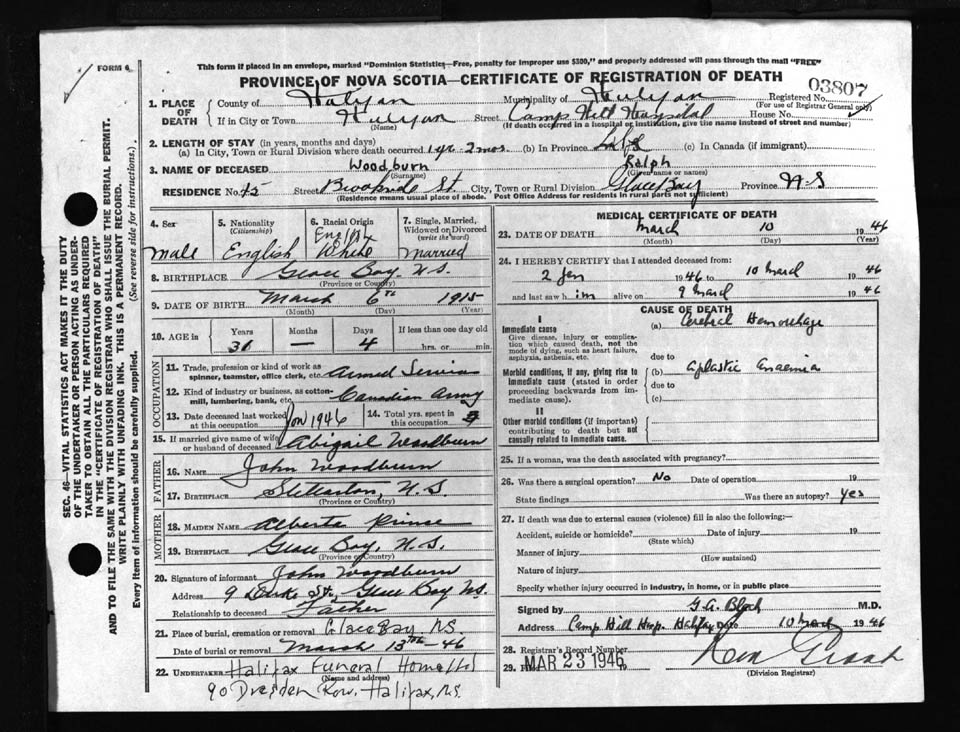 FORM 6
This form if placed in an envelope, marked "Dominion Statistics—Free, penalty for improper use $300," and properly addressed will pass through the mail "FREE"
PROVINCE OF NOVA SCOTIA—CERTIFICATE OF REGISTRATION OF DEATH
03807
1. PLACE OF DEATH County of Halifax Municipality of Halifax Registered No.
(For use of Registrar General only)
If in City or Town Halifax Street Camp Hill Hospital House No.
(Name) (If death occurred in a hospital or institution, give the name instead of street and number)
2. LENGTH OF STAY (in years, months and days)
(a) In City, Town or Rural Division where death occurred 1 yr. 2 mos. (b) In Province Life (c) In Canada (if immigrant)
3. NAME OF DECEASED Woodburn Ralph
(Surname) (Given name or names)
RESIDENCE No. 45 Street Brookside St. City, Town or Rural Division Glace Bay Province N-S
(Residence means usual place of abode. Post Office Address for residents in rural parts not sufficient)
4. Sex 5. Nationality (Citizenship) 6. Racial Origin 7. Single, Married, Widowed or Divorced (write the word)
male English English White married
8. BIRTHPLACE Glace Bay, N.S.
(Province or Country)
9. DATE OF BIRTH March 6th 1915
(Month) (Day) (Year)
10. AGE in Years Months Days If less than one day old
31 — 4 hrs. or min.
OCCUPATION
11. Trade, profession or kind of work as spinner, teamster, office clerk, etc. Armed Services
12. Kind of industry or business, as cotton-mill, lumbering, bank, etc. Canadian Army
13. Date deceased last worked at this occupation Jan 1946 14. Total yrs. spent in this occupation
15. If married give name of wife or husband of deceased Abigail Woodburn
FATHER
16. NAME John Woodburn
17. BIRTHPLACE Stellarton, N.S.
(Province or Country)
MOTHER
18. MAIDEN NAME Alberta
19. BIRTHPLACE Glace Bay, N.S.
(Province or Country)
20. Signature of informant John Woodburn
Address 9 St., Glace Bay NS.
Relationship to deceased Father
21. Place of burial, cremation or removal Glace Bay, N.S.
Date of burial or removal March 13th-46
22. UNDERTAKER Halifax Funeral Home
(Name and address)
90 Dresden Row, Halifax, N.S.
MEDICAL CERTIFICATE OF DEATH
23. DATE OF DEATH March 10 1946
(Month) (Day) (Year)
24. I HEREBY CERTIFY that I attended deceased from:
2 Jan 1946 to 10 March 1946
and last saw him alive on 9 March 1946
CAUSE OF DEATH
I
Immediate cause (a) Cerebral Hemorrhage
Give disease, injury or complication which caused death, not the mode of dying, such as heart failure, asphyxia, asthenia, etc.
due to
Morbid conditions, if any, giving rise to immediate cause (stated in order proceeding backwards from immediate cause). (b) aplastic anaemia
due to
(c)
II
Other morbid conditions (if important) contributing to death but not causally related to immediate cause.
25. If a woman, was the death associated with pregnancy?
26. Was there a surgical operation? No Date of operation 19
State findings Was there an autopsy? yes
27. If death was due to external causes (violence) fill in also the following:—
Accident, suicide or homicide? Date of injury 19
(State which)
Manner of injury
(How sustained)
Nature of injury
Specify whether injury occurred in industry, in home, or in public place
Signed by M.D.
Address Camp Hill Hosp. Halifax Date 10 March 1946
28. Registrar's Record Number
29. MAR 23 1946
(Division Registrar)
SEC. 46—VITAL STATISTICS ACT MAKES IT THE DUTY
OF THE UNDERTAKER OR PERSON ACTING AS UNDER-
TAKER TO OBTAIN ALL THE PARTICULARS REQUIRED
IN THE "CERTIFICATE OF REGISTRATION OF DEATH"
AND TO FILE THE SAME WITH THE DIVISION REGISTRAR WHO SHALL ISSUE THE BURIAL PERMIT.
WRITE PLAINLY WITH UNFADING INK. THIS IS A PERMANENT RECORD.
Every item of information should be carefully supplied. (See reverse side for instructions.)